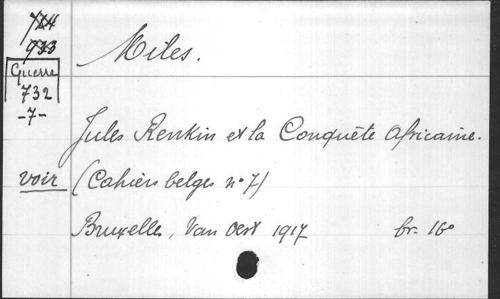 724
933
Guerre
732
-7-
Miles.
Jules Renkin et la Conquête africaine.
voir (Cahiers belges n° 7)
Bruxelles, Van Oest 1917 br. 16°